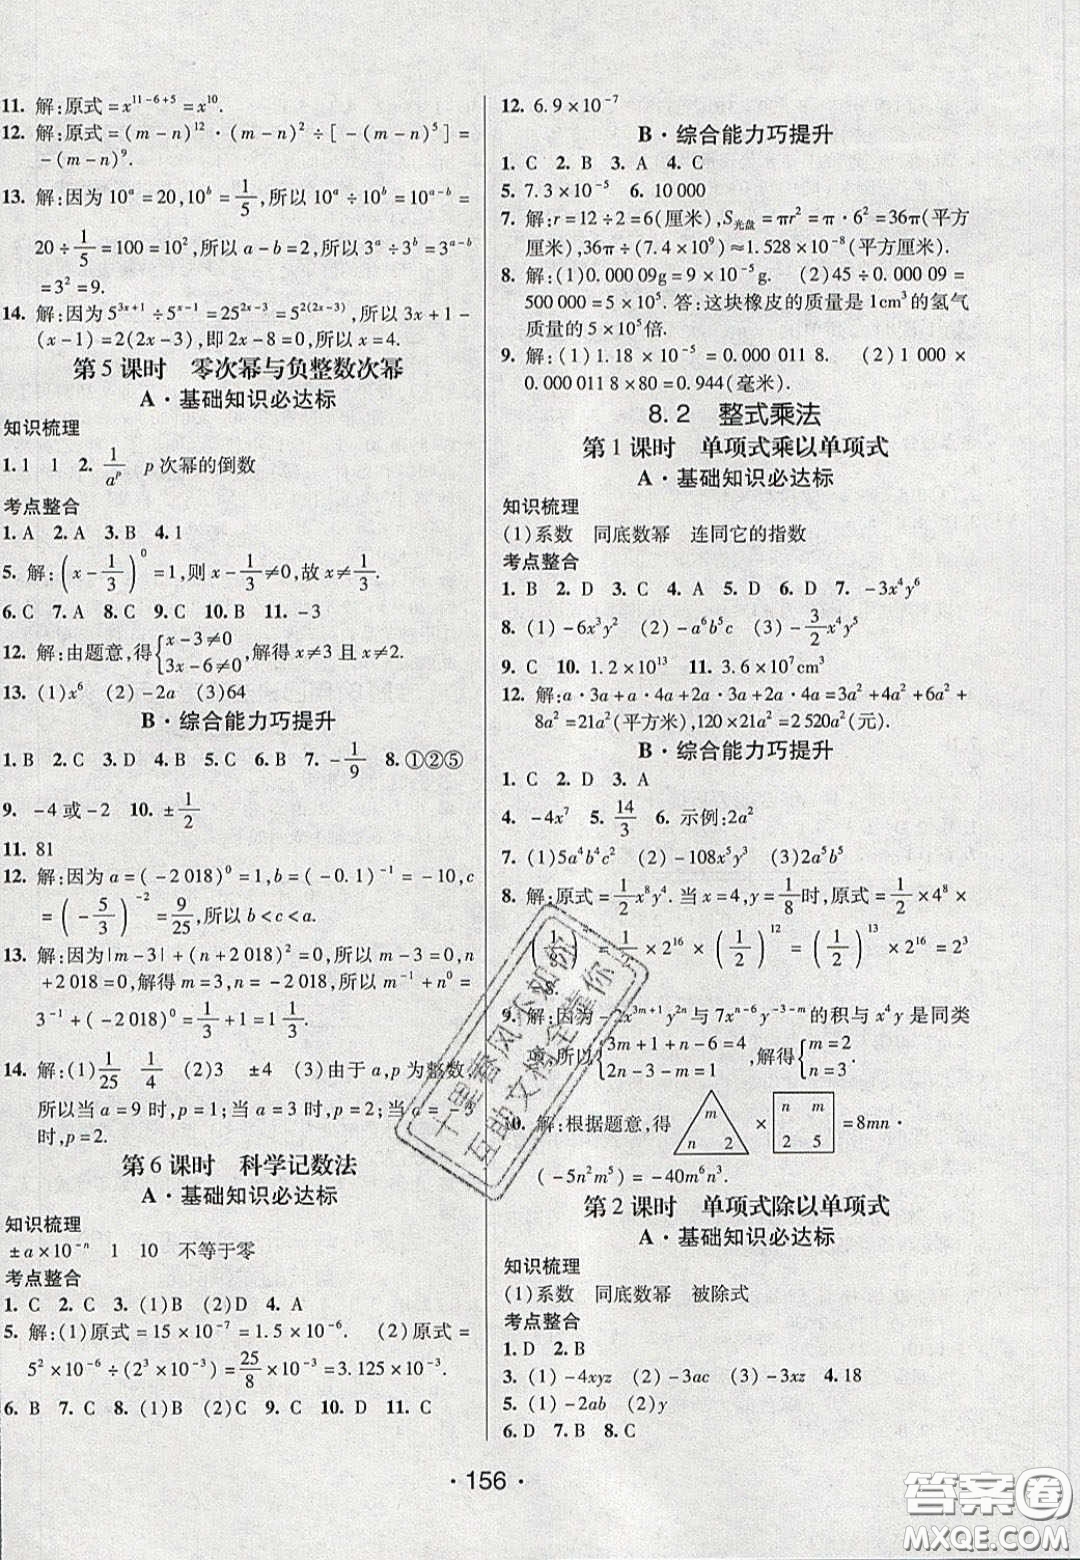 11. 解:原式=x^{11-6+5}=x^{10}.
12. 解:原式=(m-n)^{12}·(m-n)^2÷[-(m-n)^5]=
-(m-n)^9.
13. 解:因为10^a=20,10^b=1/5,所以10^a÷10^b=10^{a-b}=
20÷1/5=100=10^2,所以a-b=2,所以3^a÷3^b=3^{a-b}
=3^2=9.
14. 解:因为5^{3x+1}÷5^{x-1}=25^{2x-3}=5^{2(2x-3)},所以3x+1-
(x-1)=2(2x-3),即2x-8=0,所以x=4.
第5课时 零次幂与负整数次幂
A·基础知识必达标
知识梳理
1.1 1 2. 1/a^p p次幂的倒数
考点整合
1. A 2. A 3. B 4. 1
5. 解:(x-1/3)^0=1,则x-1/3≠0,故x≠1/3.
6. C 7. A 8. C 9. C 10. B 11. -3
12. 解:由题意,得{x-3≠0 3x-6≠0,解得x≠3且x≠2.
13. (1)x^6 (2)-2a (3)64
B·综合能力巧提升
1. B 2. C 3. D 4. B 5. C 6. B 7. -1/9 8. ①②⑤
9. -4或-2 10. ±1/2
11. 81
12. 解:因为a=(-2 018)^0=1,b=(-0.1)^{-1}=-10,c
=(-5/3)^{-2}=9/25,所以b<c<a.
13. 解:因为|m-3|+(n+2 018)^2=0,所以m-3=0,n
+2 018=0,解得m=3,n=-2 018,所以m^{-1}+n^0=
3^{-1}+(-2 018)^0=1/3+1=1 1/3.
14. 解:(1)1/25 1/4 (2)3 ±4 (3)由于a,p为整数,
所以当a=9时,p=1;当a=3时,p=2;当a=-3
时,p=2.
第6课时 科学记数法
A·基础知识必达标
知识梳理
±a×10^{-n} 1 10 不等于零
考点整合
1. C 2. C 3. (1)B (2)D 4. A
5. 解:(1)原式=15×10^{-7}=1.5×10^{-6}. (2)原式=
5^2×10^{-6}÷(2^3×10^{-3})=25/8×10^{-3}=3.125×10^{-3}.
6. B 7. C 8. (1)B (2)C 9. C 10. D 11. C
12. 6.9×10^{-7}
B·综合能力巧提升
1. C 2. B 3. A 4. C
5. 7.3×10^{-5} 6. 10 000
7. 解:r=12÷2=6(厘米),S光盘=πr^2=π·6^2=36π(平方
厘米),36π÷(7.4×10^9)≈1.528×10^{-8}(平方厘米).
8. 解:(1)0.000 09g=9×10^{-5}g. (2)45÷0.000 09=
500 000=5×10^5. 答:这块橡皮的质量是1cm^3的氢气
质量的5×10^5倍.
9. 解:(1)1.18×10^{-5}=0.000 011 8. (2)0.000 011 8÷
0.000 011 8×80 000=0.944(毫米).
8.2 整式乘法
第1课时 单项式乘以单项式
A·基础知识必达标
知识梳理
(1)系数 同底数幂 连同它的指数
考点整合
1. B 2. D 3. C 4. D 5. D 6. D 7. -3x^4y^6
8. (1)-6x^3y^2 (2)-a^6b^5c (3)-3/2x^4y^5
9. C 10. 1.2×10^{13} 11. 3.6×10^7cm^3
12. 解:a·3a+a·4a+2a·3a+2a·4a=3a^2+4a^2+6a^2+
8a^2=21a^2(平方米),120×21a^2=2 520a^2(元).
B·综合能力巧提升
1. C 2. D 3. A
4. -4x^7 5. 14/3 6. 示例:2a^2
7. (1)5a^4b^4c^2 (2)-108x^5y^3 (3)2a^5b^5
8. 解:原式=1/2x^8y^4. 当x=4,y=1/8时,原式=1/2×4^8×
(1/8)^4=1/2×2^{16}×(1/2)^{12}=(1/2)^{13}×2^{16}=2^3
=8.
9. 解:因为-2x^{3m+1}y^{2n}与7x^{n-6}y^{-3-m}的积与x^4y是同类
项,所以{3m+1+n-6=4 2n-3-m=1,解得{m=2 n=3.
10. 解:根据题意,得 m n 2 × n m 2 5 =8mn·
(-5n^2m^5)=-40m^6n^3.
第2课时 单项式除以单项式
A·基础知识必达标
知识梳理
(1)系数 同底数幂 被除式
考点整合
1. D 2. B
3. (1)-4xyz (2)-3ac (3)-3xz 4. 18
5. (1)-2ab (2)y
6. D 7. B 8. C
·156·
十里春风不如你
互助文档全靠你
答案圈
MXQE.COM